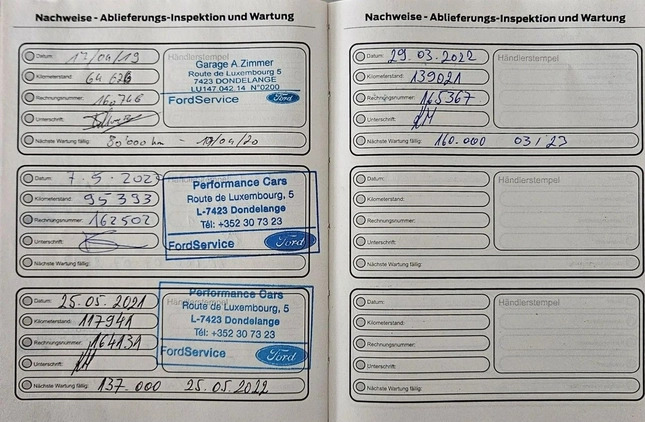 Nachweise - Ablieferungs-Inspektion und Wartung
Datum: 17/04/19
Kilometerstand: 64 626
Rechnungsnummer: 160746
Unterschrift:
Nächste Wartung fällig: 80'000 km - 17/04/20
Händlerstempel
Garage A.Zimmer
Route de Luxembourg 5
7423 DONDELANGE
LU147.042.14 N°0200
FordService Ford
Datum: 7.5.202
Kilometerstand: 95393
Rechnungsnummer: 162502
Unterschrift:
Nächste Wartung fällig:
Händlerstempel
Performance Cars
Route de Luxembourg, 5
L-7423 Dondelange
Tél: +352 30 73 23
FordService Ford
Datum: 25.05.2021
Kilometerstand: 117941
Rechnungsnummer: 164131
Unterschrift:
Nächste Wartung fällig: 137.000 25.05.2022
Händlerstempel
Performance Cars
Route de Luxembourg, 5
L-7423 Dondelange
Tél: +352 30 73 23
FordService Ford
Nachweise - Ablieferungs-Inspektion und Wartung
Datum: 29.03.2022
Kilometerstand: 139021
Rechnungsnummer: 165367
Unterschrift:
Nächste Wartung fällig: 160.000 03/23
Händlerstempel
Datum:
Kilometerstand:
Rechnungsnummer:
Unterschrift:
Nächste Wartung fällig:
Händlerstempel
Datum:
Kilometerstand:
Rechnungsnummer:
Unterschrift:
Nächste Wartung fällig:
Händlerstempel